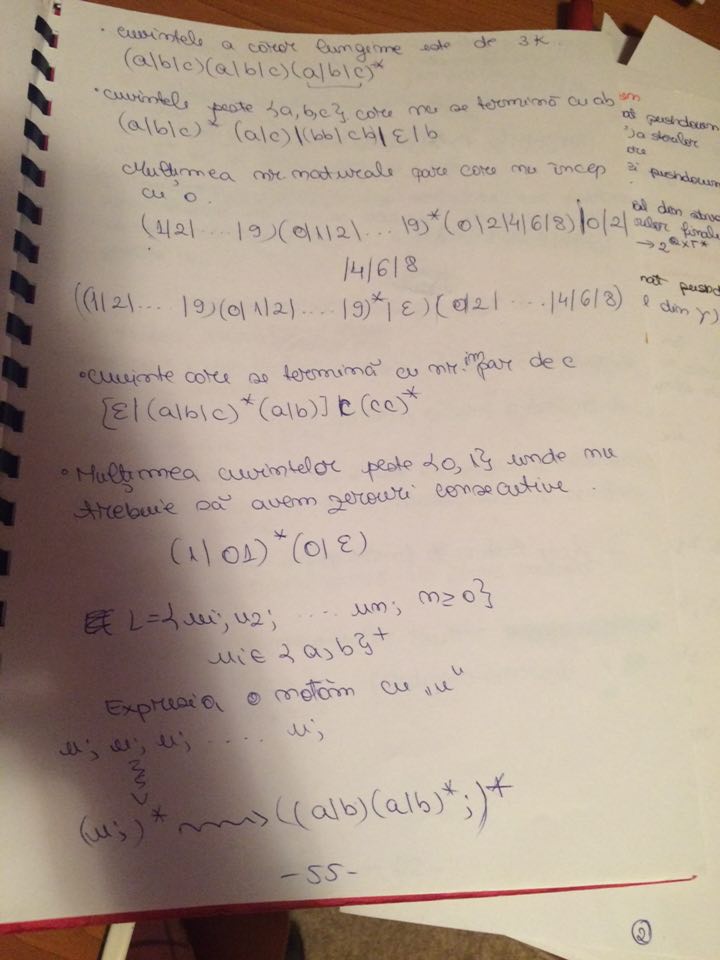 • cuvintele a căror lungime este de 3k.
(a|b|c)(a|b|c)(a|b|c)*
• cuvintele peste {a,b,c} care nu se termină cu ab
(a|b|c)* (a|c)|(bb|cb| ε|b
Mulțimea nr. naturale pare care nu încep
cu 0.
(1|2| .... |9)(0|1|2| ... |9)*(0|2|4|6|8)|0|2|
|4|6|8
((1|2| .... |9)(0|1|2| .... |9)*| ε)(0|2| .... |4|6|8)
• cuvinte care se termină cu nr. impar de c
[ε|(a|b|c)*(a|b)] c (cc)*
• Mulțimea cuvintelor peste {0,1} unde nu
trebuie să avem zerouri consecutive.
(1|01)*(0|ε)
L={u1; u2; .... un; n≥0}
ui∈{a,b}+
Expresia o notăm cu „u"
u; u; u; .... u;
(u;)* ~~~> ((a|b)(a|b)*;)*
-55-
pushdown
și pushdown
al din
→ 2^Q×Γ*
2